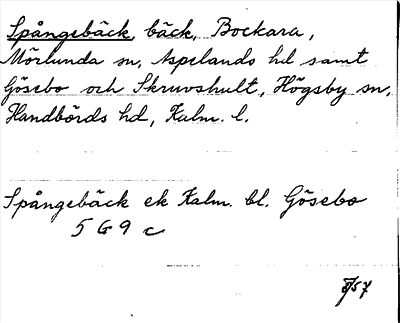 Spångebäck, bäck, Bockara,
Mörlunda sn, Aspelands hd samt
Gösebo och Skruvshult, Högsby sn,
Handbörds hd, Kalm. l.
Spångebäck ek Kalm. bl. Gösebo
5 G 9 c
/57